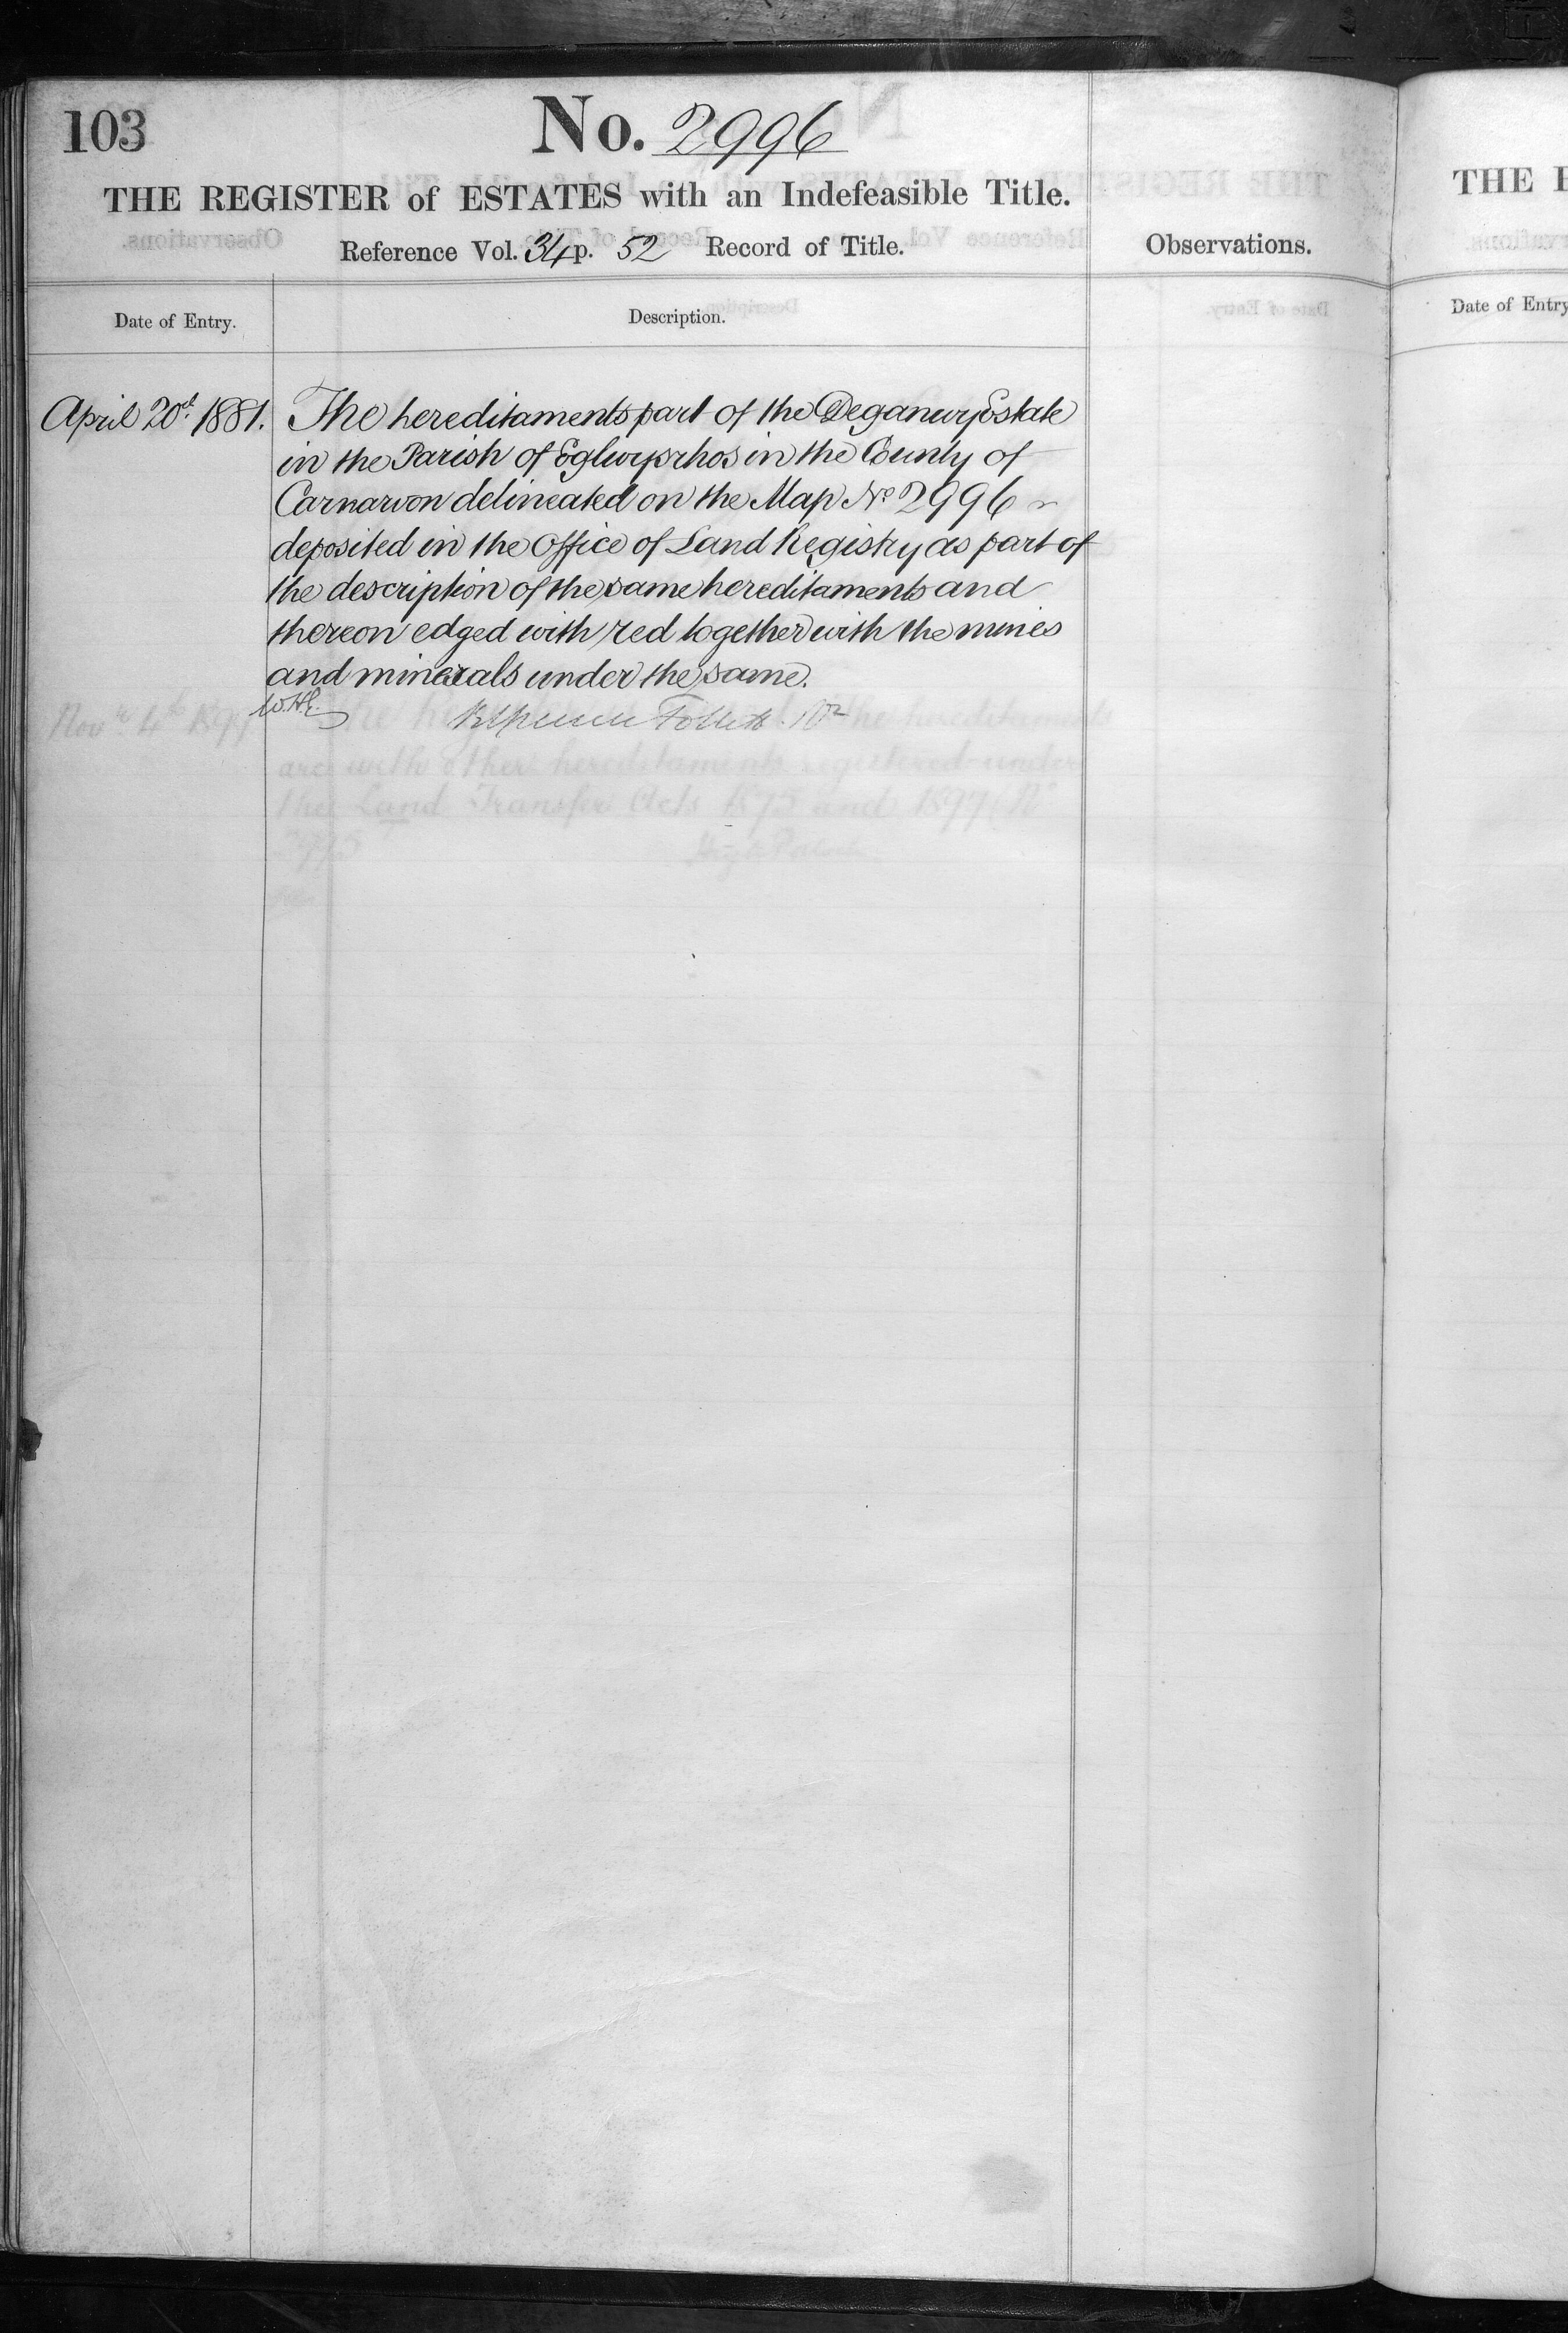 103
No. 2996
THE REGISTER of ESTATES with an Indefeasible Title.
Reference Vol. 34 p. 52 Record of Title.
Observations.
Date of Entry.
Description.
April 20th 1881.
The hereditaments part of the Deganwy Estate
in the Parish of Eglwysrhos in the County of
Carnarvon delineated on the Map No 2996
deposited in the Office of Land Registry as part of
the description of the same hereditaments and
thereon edged with red together with the mines
and minerals under the same.
Follett
Novr 4th
hereditaments
are with other hereditaments registered under
the Land Transfer Acts 1875 and 1897 No
THE
Date of Entry